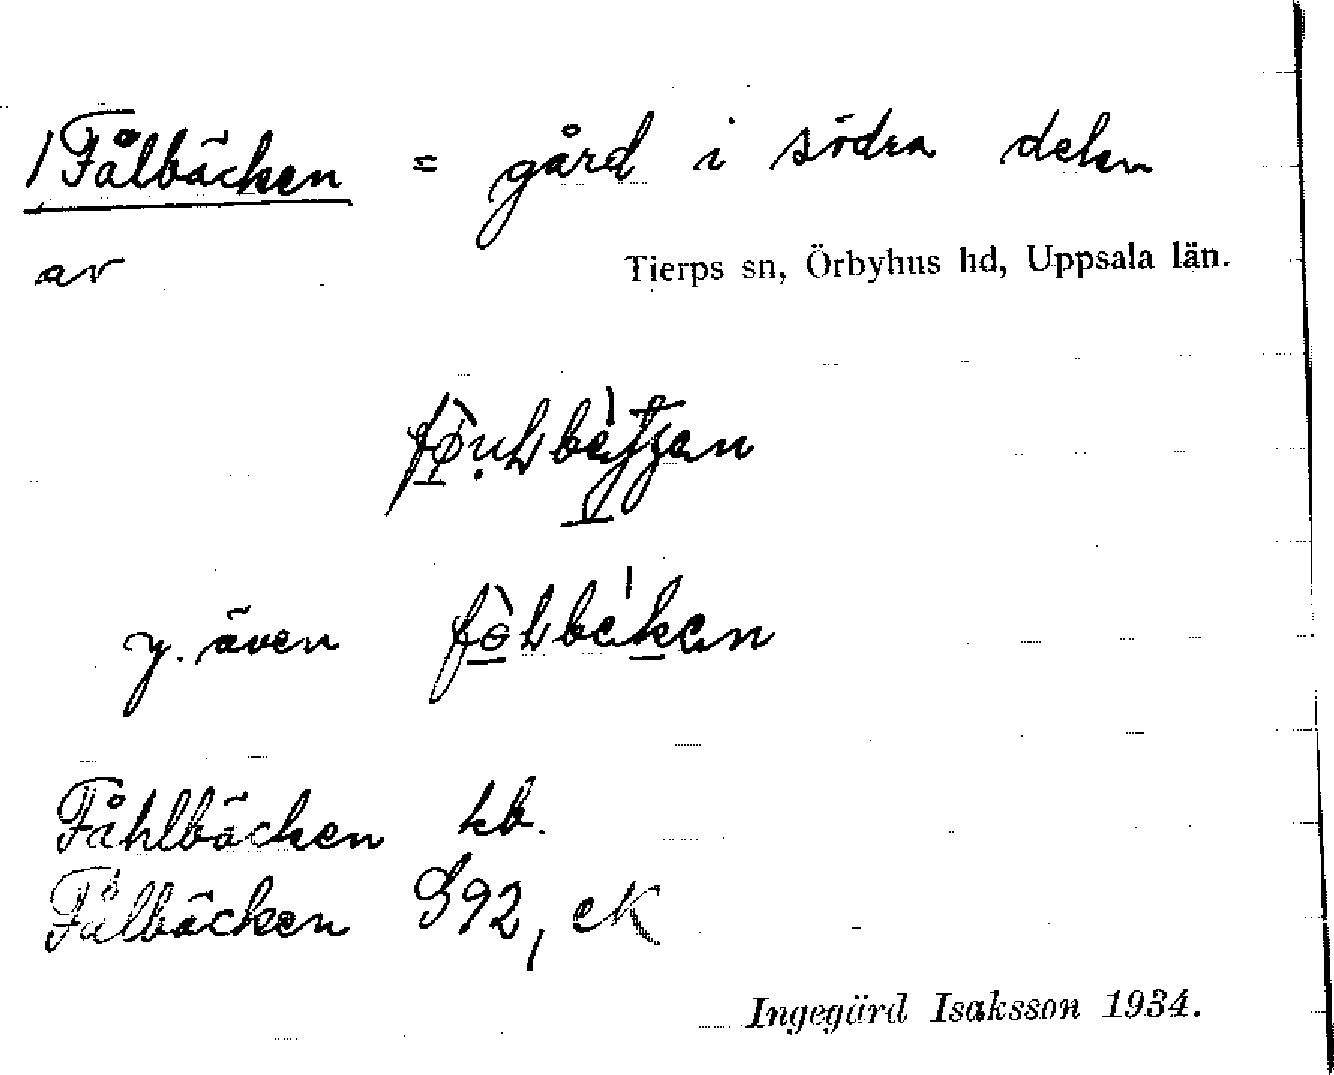 1 Fålbäcken = gård i södra delen
av Tierps sn, Örbyhus hd, Uppsala län.
y. även
Fåhlbäcken kb.
Fålbäcken S92, eK
Ingegärd Isaksson 1934.